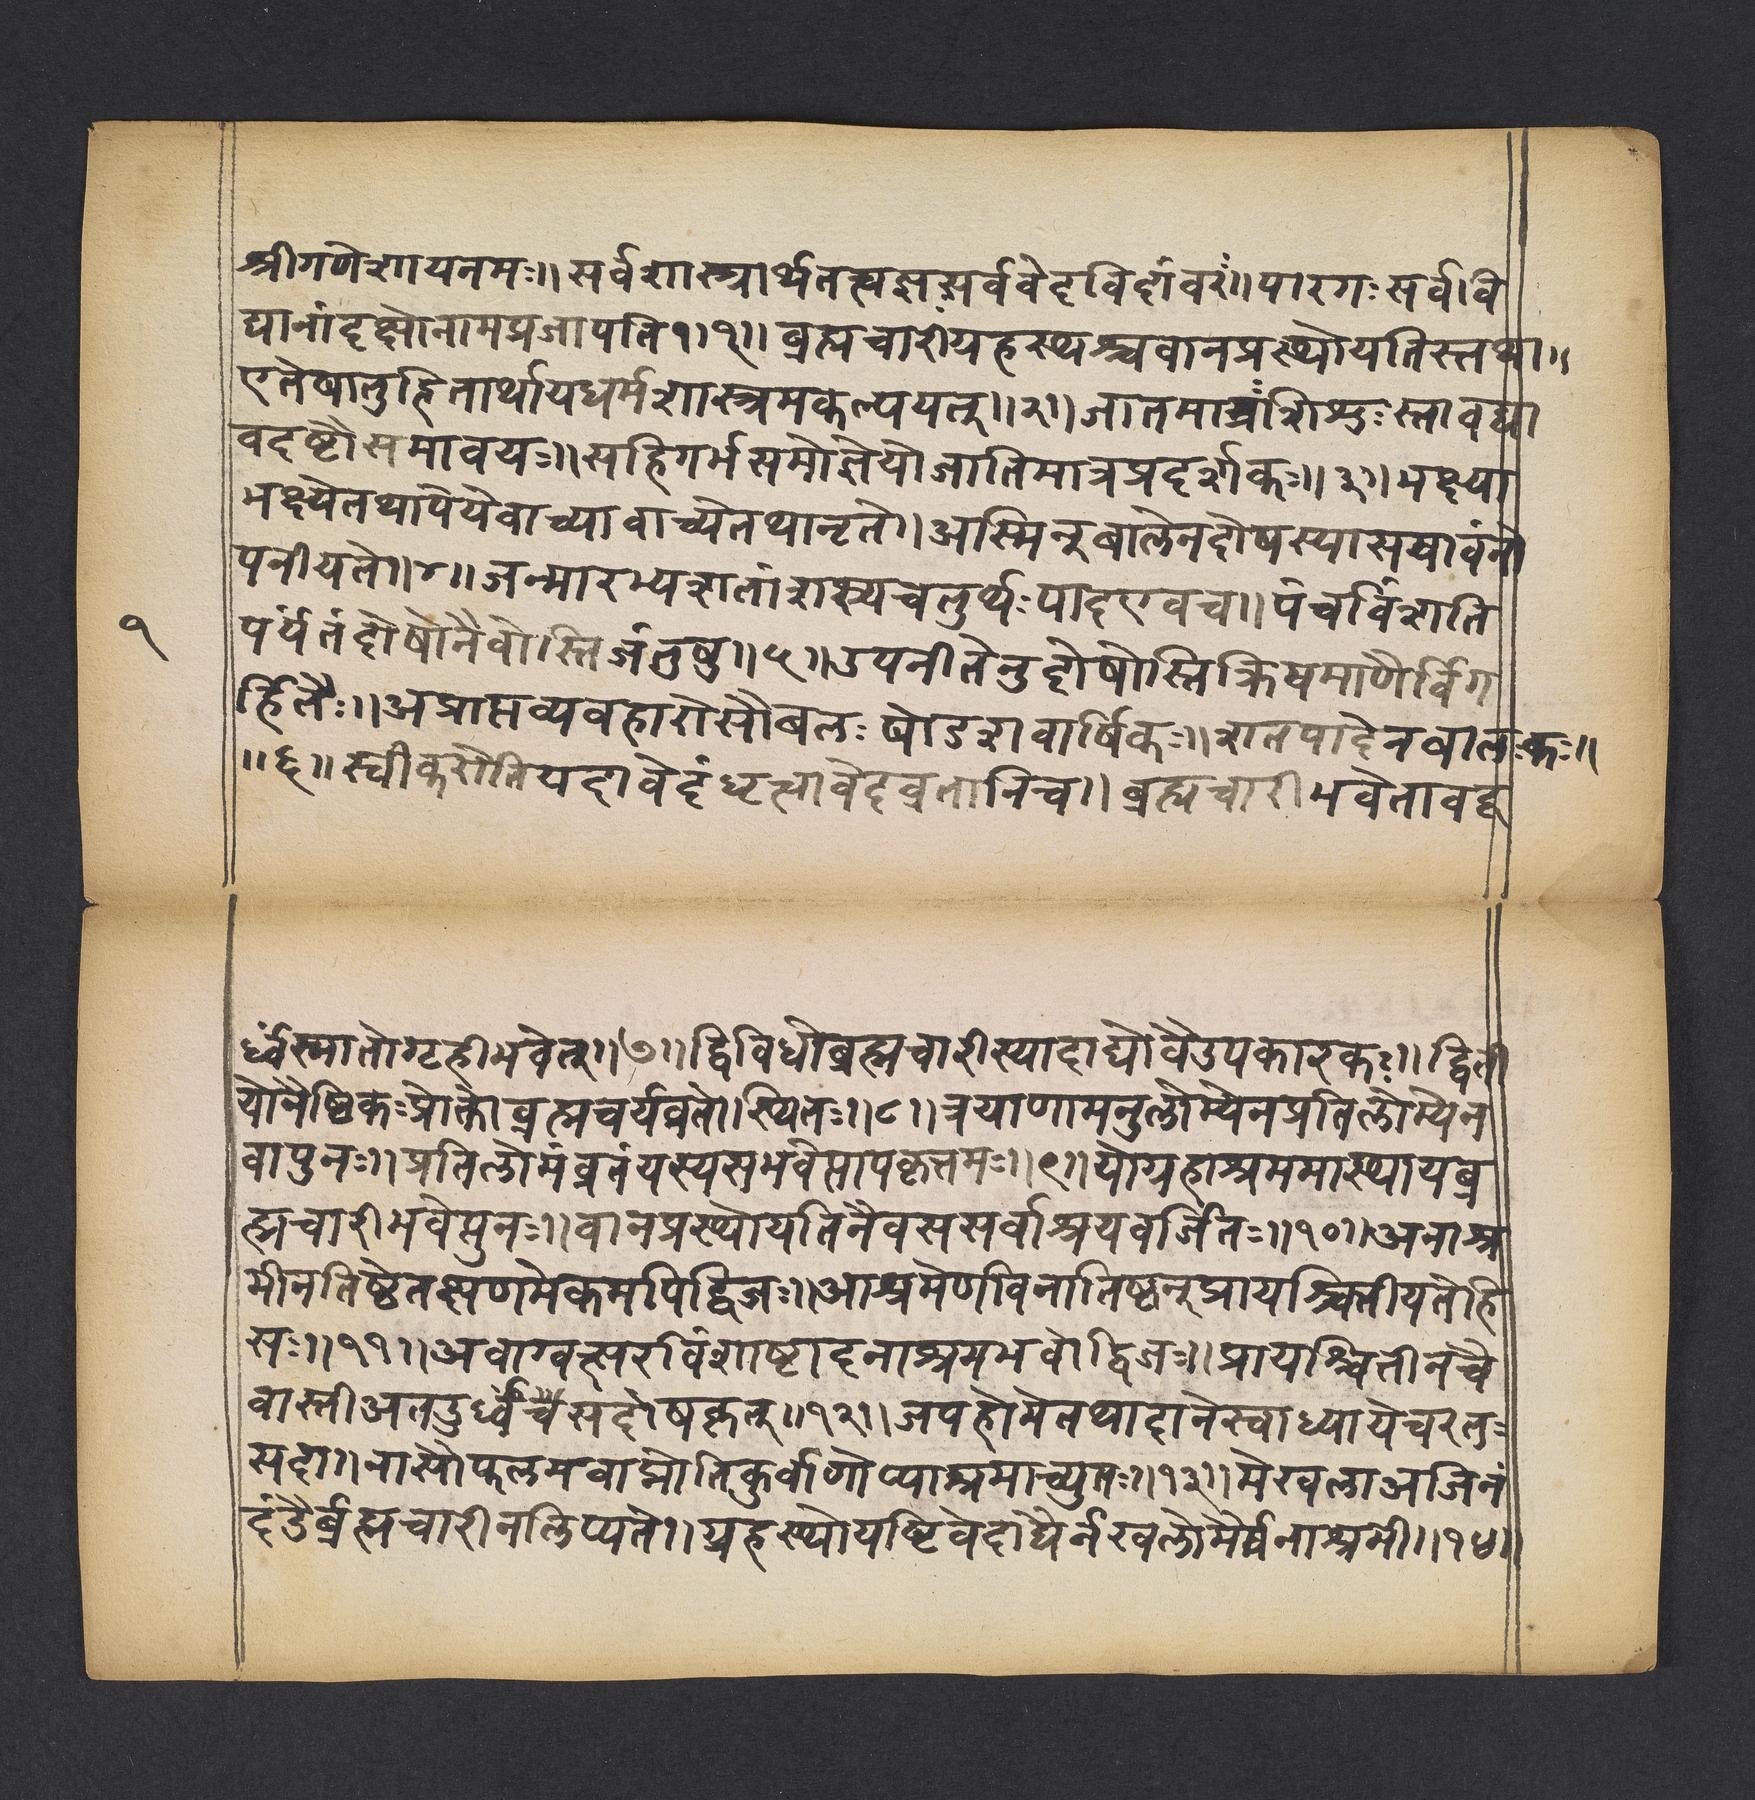 श्रीगणेशायनमः॥सर्वशास्त्रार्थतत्वज्ञःसर्ववेदविदांवरः॥पारगःसर्ववि
द्यानांदक्षोनामप्रजापति१।१॥ब्रह्मचारीयहस्थश्चवानप्रस्थोयतिस्तथा॥
एतेषातुहितार्थायधर्मशास्त्रमकल्पयत्॥२॥जातमात्रःशिशुःस्तावद्या
वदष्टौसमावयः॥सहिगर्भसमोज्ञेयोजातिमात्रप्रदर्शकः॥३॥भक्ष्या
भक्ष्येतथापेयेवाच्यावाच्येतथानृते॥अस्मिन्बालेनदोषस्यासयावंनो
पनीयते॥४॥जन्मारभ्यशतांशस्यचतुर्थःपादएवच॥पंचविंशति
१
पर्यंतंदोषोनैवोस्तिजंतुषु॥५॥उपनीतेतुदोषोस्तिक्रियमाणैर्विग
र्हितैः॥अप्राप्तव्यवहारोसौबलःषोडशवार्षिकः॥शतपादेनबालःकः॥
॥६॥स्वीकरोतियदावेदंधृत्वावेदव्रतानिच॥ब्रह्मचारीभवेतावदू
र्ध्वंस्नातोगृहीभवेत्॥७॥द्विविधोब्रह्मचारीस्यादाद्योवैउपकारकः॥द्विती
योनैष्ठिकःप्रोक्तोब्रह्मचर्यव्रतेस्थितः॥८॥त्रयाणामनुलोम्येनप्रतिलोम्येन
वापुनः॥प्रतिलोमंव्रतंयस्यसभवेत्पापकृत्तमः॥९॥योग्रहाश्रममास्थायब्र
ह्मचारीभवेत्पुनः॥वानप्रस्थोयतिनैवससर्वाश्रयवर्जितः॥१०॥अनाश्र
मीनतिष्ठेतक्षणमेकमपिद्विजः॥आश्रमेणविनातिष्ठन्प्रायश्चितीयतेहि
सः॥११॥अवाग्वत्सरविंशाष्टादनाश्रमभवोद्विजः॥प्रायश्चितीनचै
वास्तीअतउर्ध्वंचैसदोषकृतत्॥१२॥जपहोमेतथादानेस्वाध्यायेचरतः
सदा॥नासोफलमवाप्नोतिकुर्वाणोप्याश्रमाच्युतः॥१३॥मेखलाअजिनं
दंडैर्ब्रह्मचारीनलिप्यते॥ग्रहस्थोयष्टिवेदाद्यैर्नखलोमैर्वनाश्रमी॥१४॥